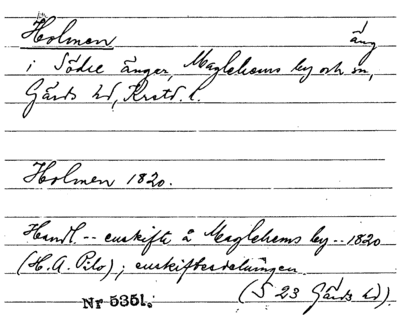 Holmen äng
i Södre ängar, Maglehems by och sn,
Gärds hd, Krstd. l.
Holmen 1820.
Handl. -- enskifte å Maglehems by -- 1820
(H. A. Pilo); enskiftesdelningen.
(S 23 Gärds hd).
Nr 5351.